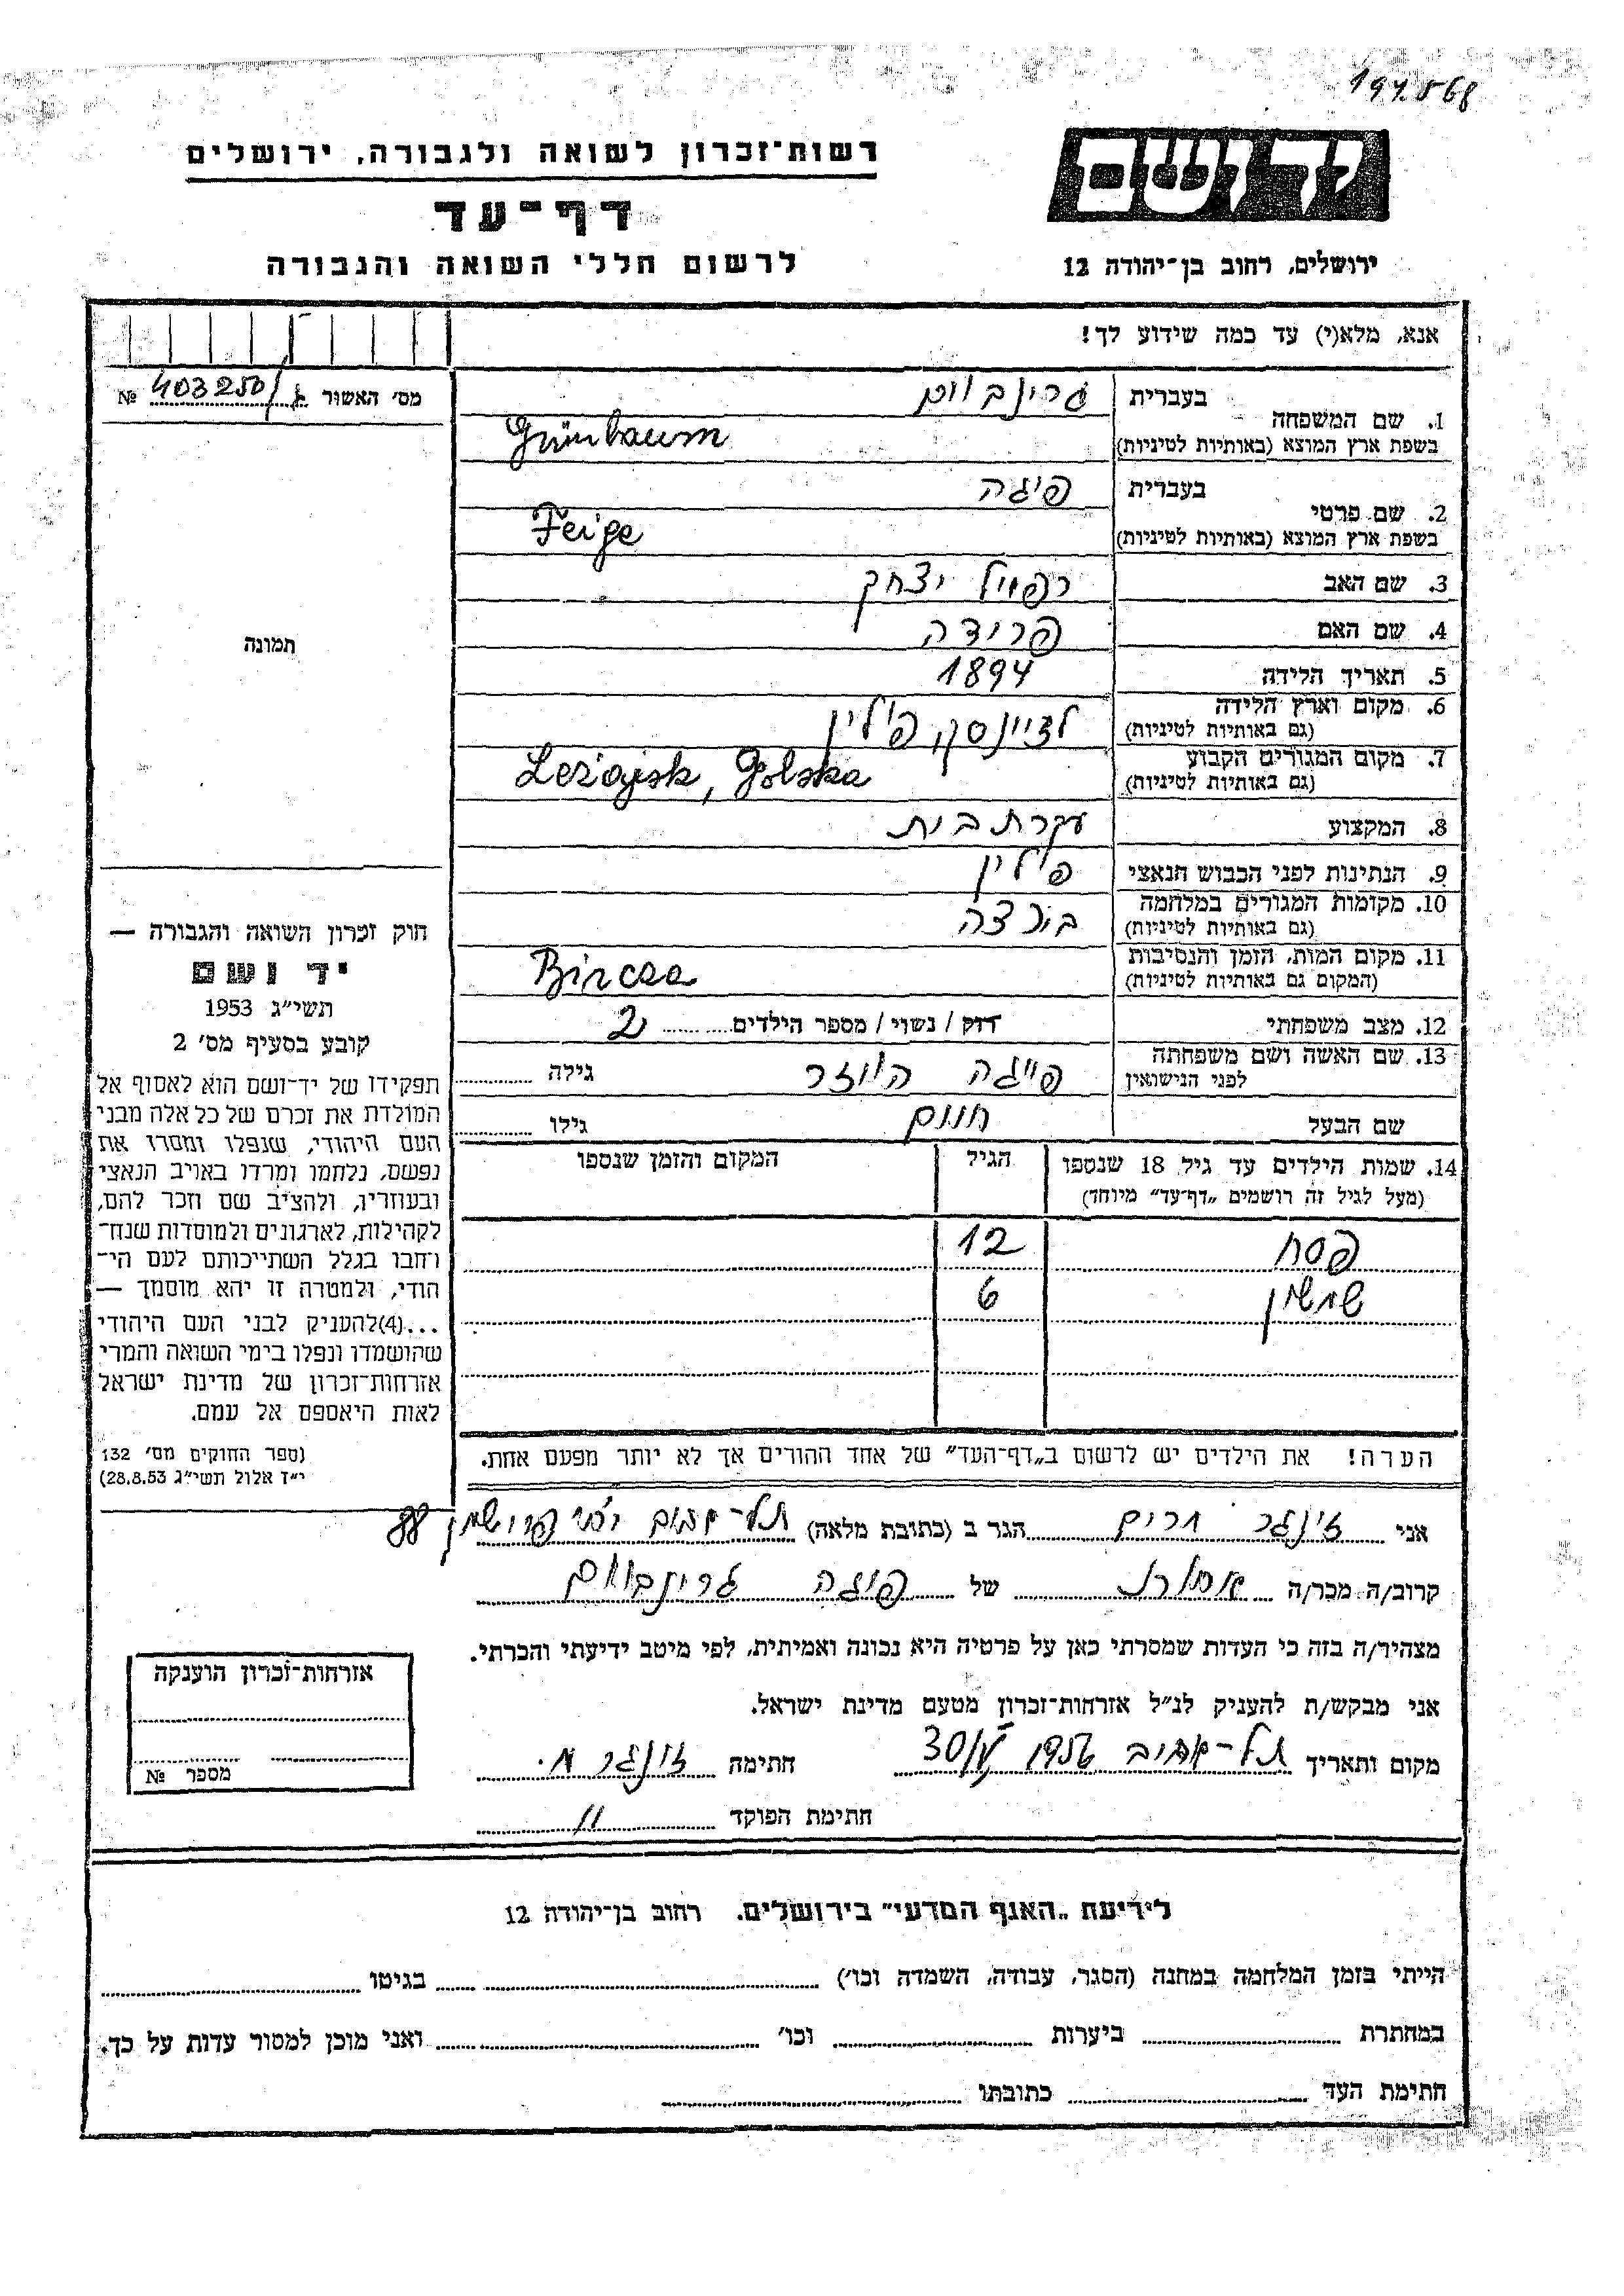 194568
יד ושם
ירושלים, רחוב בן־יהודה 12
רשות־זכרון לשואה ולגבורה, ירושלים
דף־עד
לרשום חללי השואה והגבורה
אנא, מלא(י) עד כמה שידוע לך!
מס׳ האשור 403250/ №
תמונה
1. שם המשפחה בעברית גרינבוים
בשפת ארץ המוצא (באותיות לטיניות) Grünbaum
2. שם פרטי בעברית פיגה
בשפת ארץ המוצא (באותיות לטיניות) Feige
3. שם האב רפאל יצחק
4. שם האם פרידה
5. תאריך הלידה 1894
6. מקום וארץ הלידה פולין
(גם באותיות לטיניות)
7. מקום המגורים הקבוע Leżajsk, Polska
(גם באותיות לטיניות)
8. המקצוע עקרת בית
9. הנתינות לפני הכבוש הנאצי פולין
10. מקומות המגורים במלחמה בירצה
(גם באותיות לטיניות)
11. מקום המות, הזמן והנסיבות Bircza
(המקום גם באותיות לטיניות)
12. מצב משפחתי רוק / נשוי / מספר הילדים 2
13. שם האשה ושם משפחתה פייגה גילה
לפני הנישואין
שם הבעל חיים גילו
14. שמות הילדים עד גיל 18 שנספו הגיל המקום והזמן שנספו
(מעל לגיל זה רושמים „דף־עד״ מיוחד)
פסח 12
שמשון 6
הערה! את הילדים יש לרשום ב„דף־העד״ של אחד ההורים אך לא יותר מפעם אחת.
חוק זכרון השואה והגבורה —
יד ושם
תשי״ג 1953
קובע בסעיף מס׳ 2
תפקידו של יד־ושם הוא לאסוף אל
המולדת את זכרם של כל אלה מבני
העם היהודי, שנפלו ומסרו את
נפשם, נלחמו ומרדו באויב הנאצי
ובעוזריו, ולהציב שם וזכר להם,
לקהילות, לארגונים ולמוסדות שנח־
רחבו בגלל השתייכותם לעם הי־
הודי, ולמטרה זו יהא מוסמך —
...(4)להעניק לבני העם היהודי
שהושמדו ונפלו בימי השואה והמרי
אזרחות־זכרון של מדינת ישראל
לאות היאספם אל עמם.
(ספר החוקים מס׳ 132
י״ז אלול תשי״ג 28.8.53)
אני זינגר מרים הגר ב (כתובת מלאה) תל־אביב
קרוב/ה מכר/ה אחות של פיגה גרינבוים
מצהיר/ה בזה כי העדות שמסרתי כאן על פרטיה היא נכונה ואמיתית, לפי מיטב ידיעתי והכרתי.
אני מבקש/ת להעניק לנ״ל אזרחות־זכרון מטעם מדינת ישראל.
מקום ותאריך תל־אביב חתימה זינגר מ.
חתימת הפוקד
אזרחות־זכרון הוענקה
מספר №
לידיעת „האגף המדעי״ בירושלים. רחוב בן־יהודה 12
הייתי בזמן המלחמה במחנה (הסגר, עבודה, השמדה וכו׳) בגיטו
במחתרת ביערות וכו׳ ואני מוכן למסור עדות על כך.
חתימת העד כתובתו